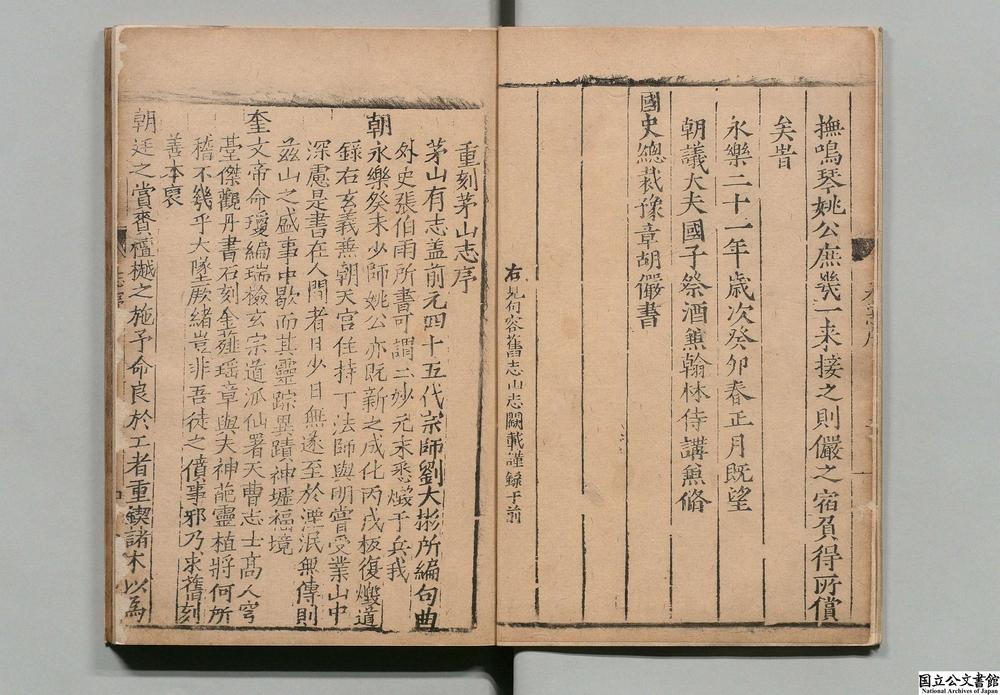 撫鳴琴姚公庶幾一来接之則儼之宿負得所償
矣昔
永樂二十一年歲次癸卯春正月既望
朝議大夫國子祭酒兼翰林侍講兼脩
國史總裁豫章胡儼書
右見句容舊志山志闕載謹錄于前
重刻茅山志序
茅山有志盖前元四十五代宗師劉大彬所編句曲
外史張伯雨所書可謂二妙元末悉燬于兵我
朝永樂癸未少師姚公亦既新之成化丙戌板復燬道
錄右玄義兼朝天宫住持丁法師與明嘗受業山中
深慮是書在人間者日少日無遂至於湮泯無傳則
兹山之盛事中歇而其靈踪異蹟神墟福境
奎文帝命瓊編瑞檢玄宗道派仙署天曹志士高人穹
臺傑觀丹書石刻金薤瑶章與夫神葩靈植將何所
稽不幾乎大墜厥緒豈非吾徒之僨事邪乃求舊刻
善本裒
朝廷之賞賚檀樾之施予命良於工者重鍥諸木以為
国立公文書館
National Archives of Japan